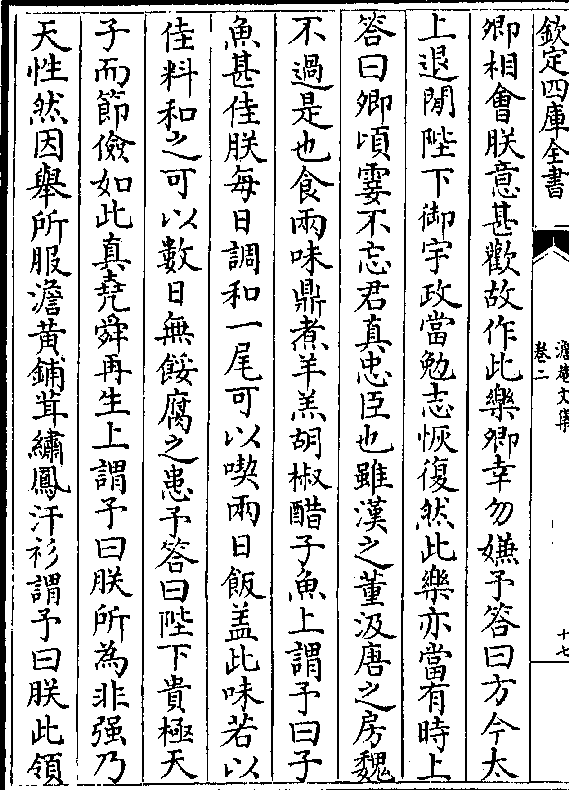 欽定四庫全書
澹菴文集
卷二
十七
卿相會朕意甚歡故作此樂卿幸勿嫌予答曰方今太
上退閒陛下御宇政當勉志恢復然此樂亦當有時上
答曰卿頃霎不忘君真忠臣也雖漢之董汲唐之房魏
不過是也食兩味鼎煮羊羔胡椒醋子魚上謂予曰子
魚甚佳朕每日調和一尾可以喫兩日飯盖此味若以
佳料和之可以數日無餒腐之患予答曰陛下貴極天
子而節儉如此真堯舜再生上謂予曰朕所為非强乃
天性然因舉所服澹黄鋪茸繡鳳汗衫謂予曰朕此領